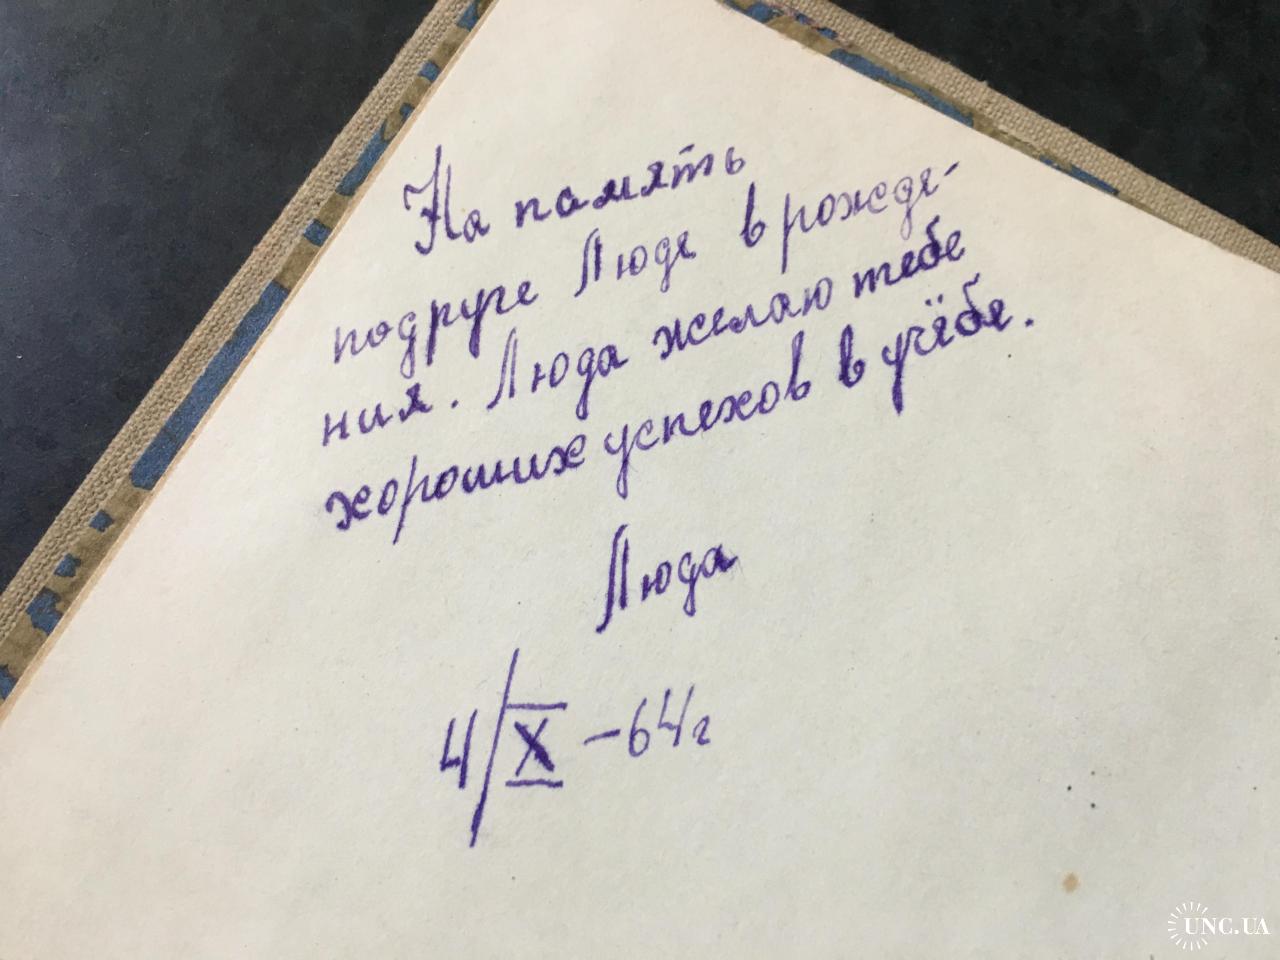 На память
подруге Люде в рожде-
ния. Люда желаю тебе
хороших успехов в учёбе.
Люда
4/X -64г
UNC.UA